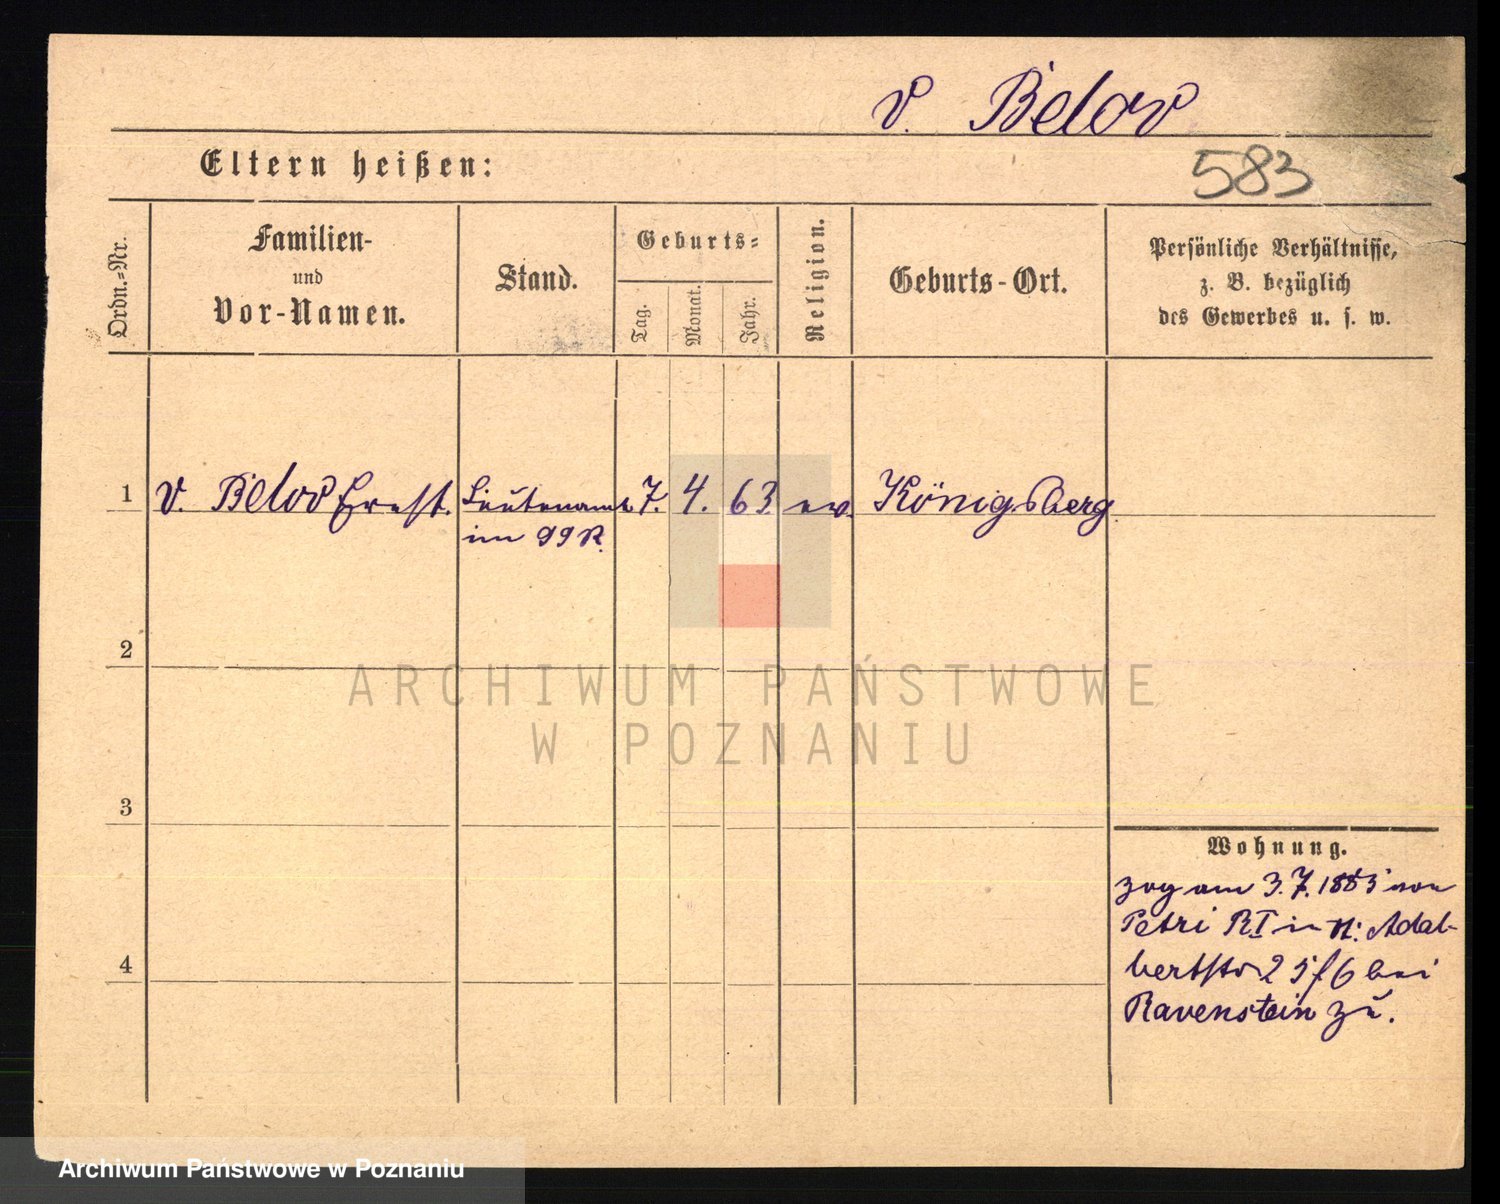 v. Belov
Eltern heißen:
583
Ordn.-Nr.
Familien-
und
Vor-Namen.
Stand.
Geburts-
Tag.
Monat.
Jahr.
Religion.
Geburts-Ort.
Persönliche Verhältnisse,
z. B. bezüglich
des Gewerbes u. s. w.
1 v. Belov Ernst. Lieutenant 7. 4. 63. ev. Königsberg
im 99 R.
2
ARCHIWUM PAŃSTWOWE
W POZNANIU
3
Wohnung.
zog am 3.7.1885 von
Petri RI in N: Adal-
4
bertstr 2 5/6 bei
Ravenstein zu.
Archiwum Państwowe w Poznaniu